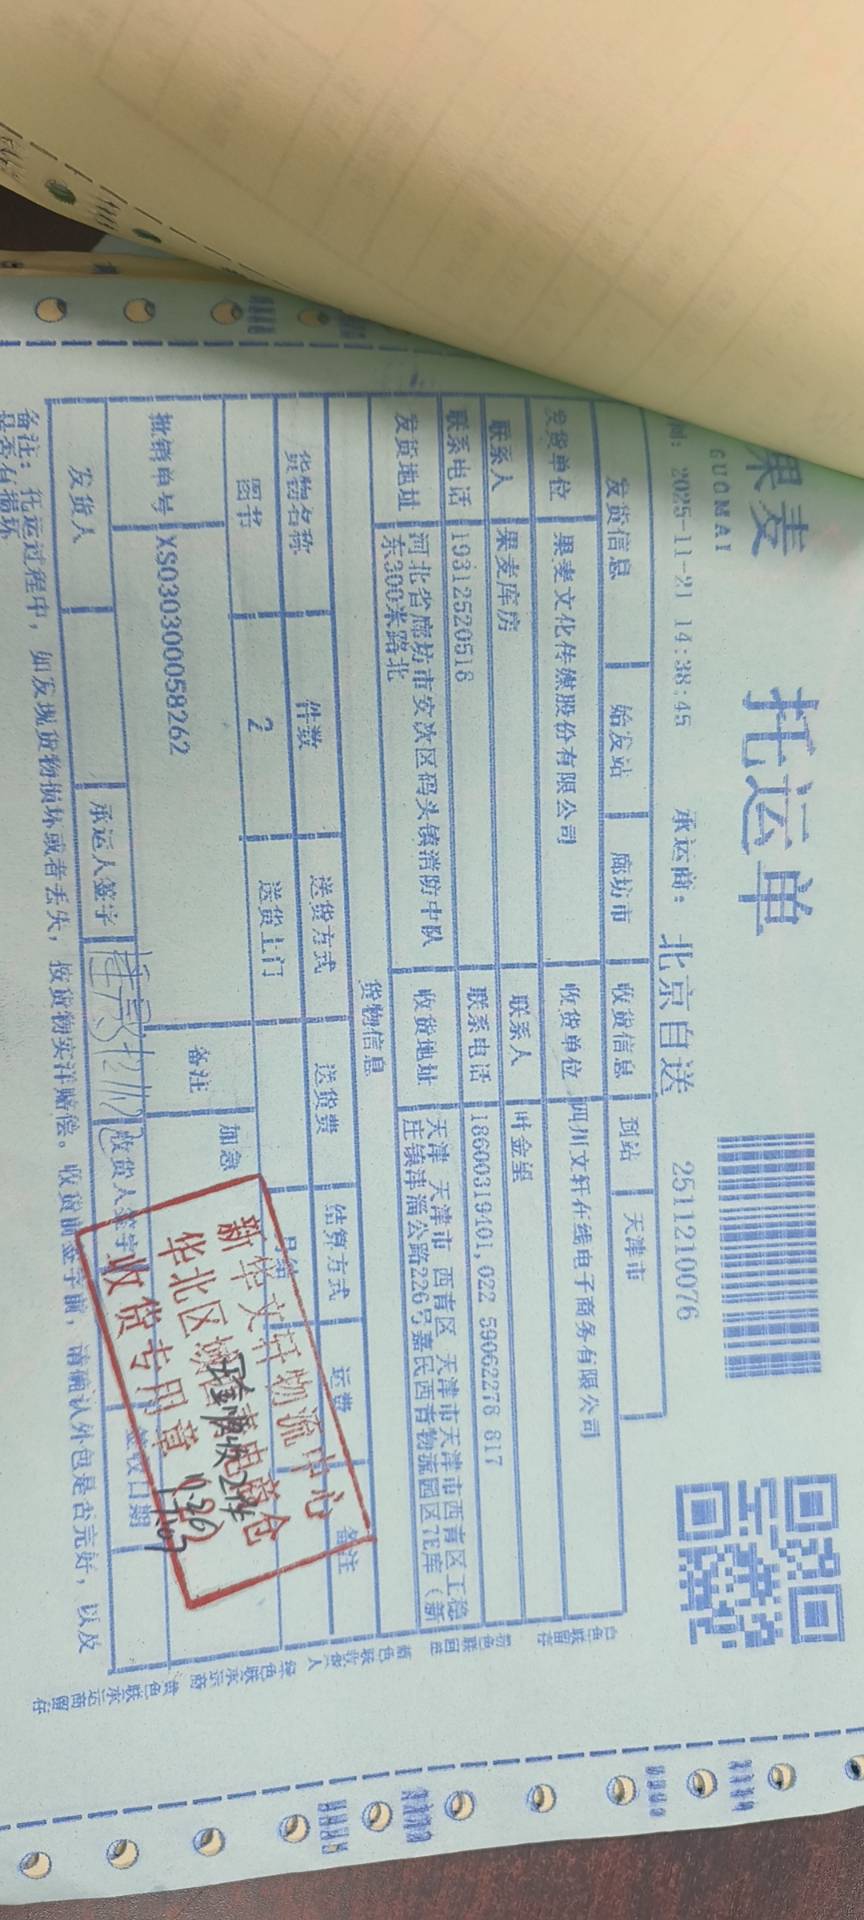 果麦
GUOMAI
托运单
间: 2025-11-21 14:38:45 承运商: 北京自送 2511210076
发货信息 始发站 廊坊市 收货信息 到站 天津市
发货单位 果麦文化传媒股份有限公司 收货单位 四川文轩在线电子商务有限公司
联系人 果麦库房 联系人 叶金星
联系电话 19312520518 联系电话 18600319401,022 59062278 817
发货地址 河北省廊坊市安次区码头镇消防中队 收货地址 天津 天津市 西青区 天津市天津市西青区王稳
东300米路北 庄镇津淄公路226号嘉民西青物流园区7E库(新
货物信息
货物名称 件数 送货方式 送货费 结算方式 运费 备注
图书 2 送货上门 月结
撤销单号 XS030300058262 备注 加急
发货人 承运人签字 收货人签字 签收日期
新华文轩物流中心
华北区域 电商仓
收货专用章
备注: 托运过程中, 如发现货物损坏或者丢失, 按货物实洋赔偿。收货前签字前, 请确认外包是否完好, 以及
是否有损坏
白色联留存
粉色联回单
蓝色联收货人
绿色联承运商
黄色联承运商留存